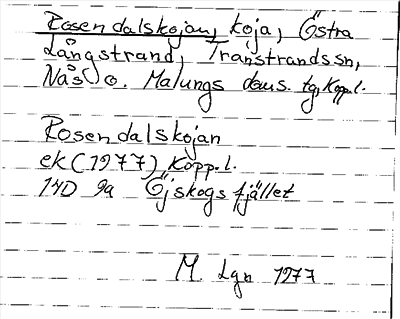 Rosendalskojan, koja, Östra
Långstrand, Transtrands sn,
Nås o. Malungs doms. tg, Kopp.l.
Rosendalskojan
ek (1977) Kopp.l.
14D 9a Öjskogsfjället
M. Lgn 1977